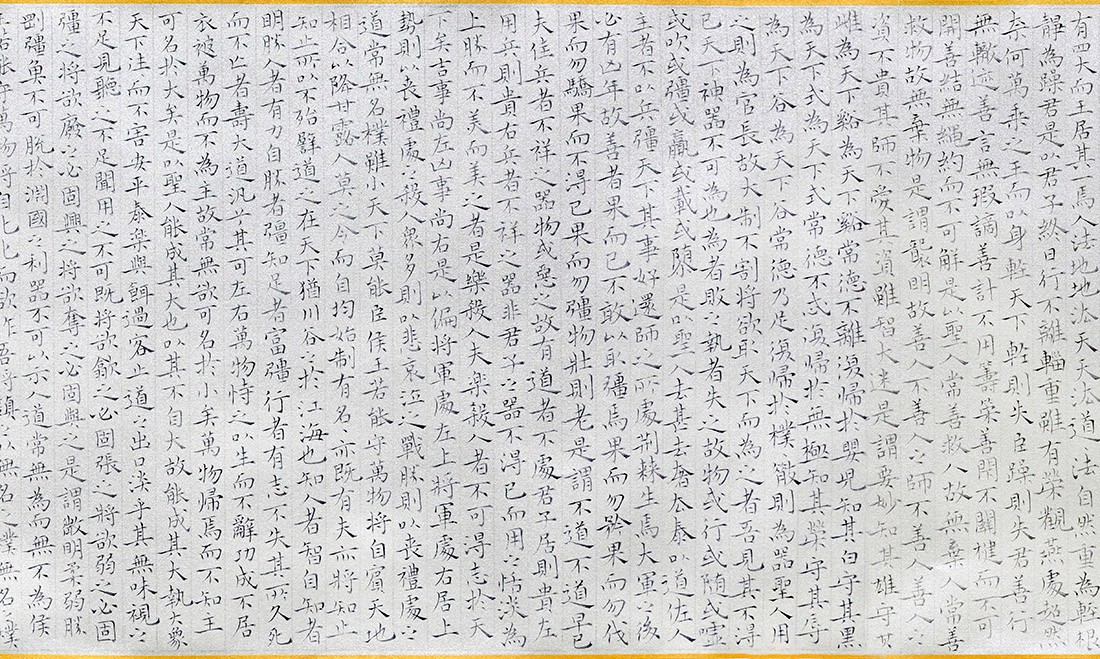 有四大而王居其一焉人法地地法天天法道〻法自然重為輕根
靜為躁君是以君子終日行不離輜重雖有榮觀燕處超然
奈何萬乘之王而以身輕天下輕則失臣躁則失君善行
無轍迹善言無瑕謫善計不用籌策善閉不關楗而不可
開善結無繩約而不可解是以聖人常善救人故無棄人常善
救物故無棄物是謂襲明故善人不善人之師不善人善人之
資不貴其師不愛其資雖智大迷是謂要妙知其雄守其
雌為天下谿為天下谿常德不離復歸於嬰兒知其白守其黑
為天下式為天下式常德不忒復歸於無極知其榮守其辱
為天下谷為天下谷常德乃足復歸於樸〻散則為器聖人用
之則為官長故大制不割將欲取天下而為之者吾見其不得
已天下神器不可為也為者敗之執者失之故物或行或隨或噓
或吹或彊或羸或載或隳是以聖人去甚去奢去泰以道佐人
主者不以兵彊天下其事好還師之所處荊棘生焉大軍之後
必有凶年故善者果而已不敢以取彊焉果而勿矜果而勿伐
果而勿驕果而不得已果而勿彊物壯則老是謂不道不道早已
夫佳兵者不祥之器物或惡之故有道者不處君子居則貴左
用兵則貴右兵者不祥之器非君子之器不得已而用之恬淡為
上勝而不美而美之者是樂殺人夫樂殺人者不可得志於天
下矣吉事尚左凶事尚右是以偏將軍處左上將軍處右居上
勢則以喪禮處之殺人衆多則以悲哀泣之戰勝則以喪禮處之
道常無名樸雖小天下莫能臣侯王若能守萬物將自賓天地
相合以降甘露人莫之令而自均始制有名亦既有夫亦將知止
知止所以不殆譬道之在天下猶川谷之於江海也知人者智自知者
明勝人者有力自勝者彊知足者富彊行者有志不失其所久死
而不亡者壽大道汎兮其可左右萬物恃之以生而不辭功成不居
衣被萬物而不為主故常無欲可名於小矣萬物歸焉而不知主
可名於大矣是以聖人能成其大也以其不自大故能成其大執大象
天下往而不害安平泰樂與餌過客止道之出口淡乎其無味視之
不足見聽之不足聞用之不可既將欲歙之必固張之將欲弱之必固
彊之將欲廢之必固興之將欲奪之必固與之是謂微明柔弱勝
剛彊魚不可脫於淵國之利器不可以示人道常無為而無不為侯
若能守萬物將自化化而欲作吾將鎮之以無名之樸無名樸